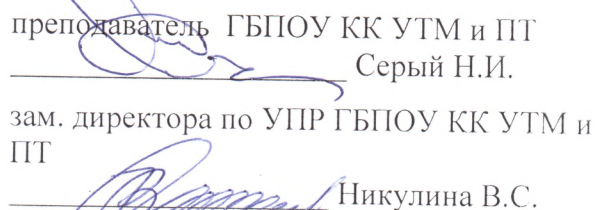 преподаватель ГБПОУ КК УТМ и ПТ
Серый Н.И.
зам. директора по УПР ГБПОУ КК УТМ и
ПТ
Никулина В.С.